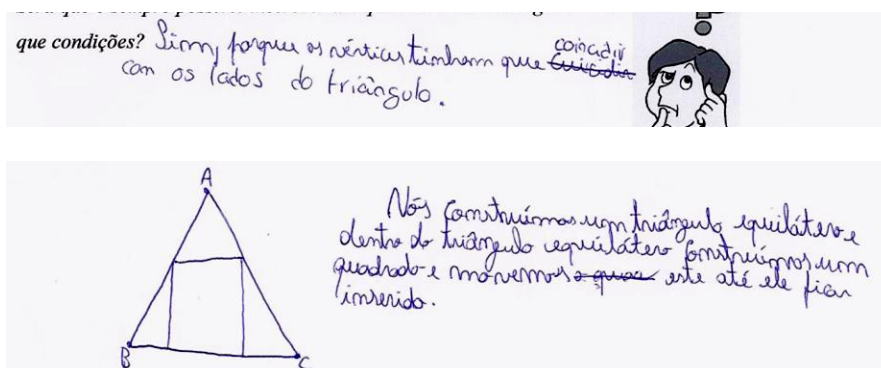 que condições? Sim, porque os vértices tinham que coincidir
com os lados do triângulo.
A
Nós construímos um triângulo equilátero e
dentro do triângulo equilátero construímos um
quadrado e movemos este até ele ficar
inserido.
B
C